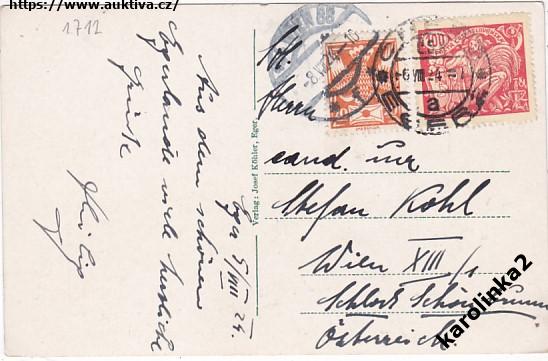 https://www.auktiva.cz/
1712
Aus dem schönen
Egerlande viele herzliche
Grüße
Philip
Eger 5/VIII 24.
Verlag: Josef Köhler, Eger.
Herrn
cand. iur
Stefan Kohl
Wien XIII/1
Schloß Schönbrunn
Österreich
WIEN 88
-8.VIII.24-10
-6.VIII.24-
a
karolinka2